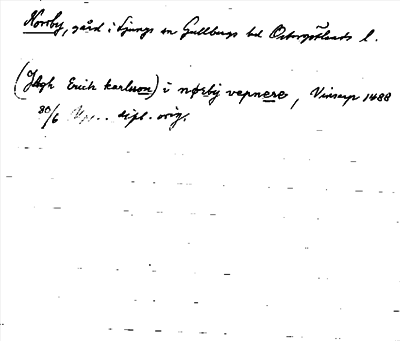 Norrby, gård i Ljungs sn Gullbergs hd Östergötlands l.
(Jagh Erich karlsson) i nørby vepnere, Vinsarp 1488
30/6 .. dipl. orig.